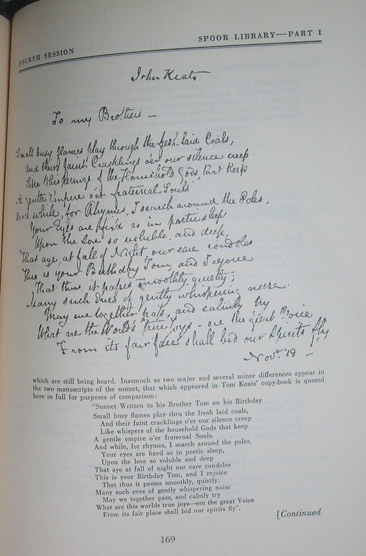 FOURTH SESSION
SPOOR LIBRARY—PART I
John Keats
To my Brothers —
Small busy flames play through the fresh laid Coals,
And their faint Cracklings o'er our silence creep
Like Whisperings of the Household Gods, that keep
A gentle Empire o'er fraternal Souls
And while, for Rhymes, I search around the Poles,
Your Eyes are fix'd as in poetic sleep
Upon the Lore so voluble, and deep,
That aye, at fall of Night, our care condoles
This is your Birthday Tom, and I rejoice
That thus it passes smoothly, quietly;
Many such Eves of gently whispering noise
May we together pass, and calmly try
What are the World's true joys—ere the great Voice
From its fair face shall bid our Spirits fly
Novr 18 —
which are still being heard. Inasmuch as two major and several minor differences appear in
the two manuscripts of the sonnet, that which appeared in Tom Keats' copy-book is quoted
here in full for purposes of comparison:
"Sonnet Written to his Brother Tom on his Birthday
Small busy flasses play thru the fresh laid coals,
And their faint cracklings o'er our silence creep
Like whispers of the household Gods that keep
A gentle empire o'er fraternal Souls.
And while, for rhymes, I search around the poles,
Your eyes are fixed as in poetic sleep,
Upon the love so voluble and deep
That aye at fall of night our care condoles
This is your Birthday Tom, and I rejoice
That thus it passes smoothly, quietly:
Many such eves of gently whispering noise
May we together pass, and calmly try
What are this worlds true joys—ere the great Voice
From its fair place shall bid our spirits fly".
[Continued
169